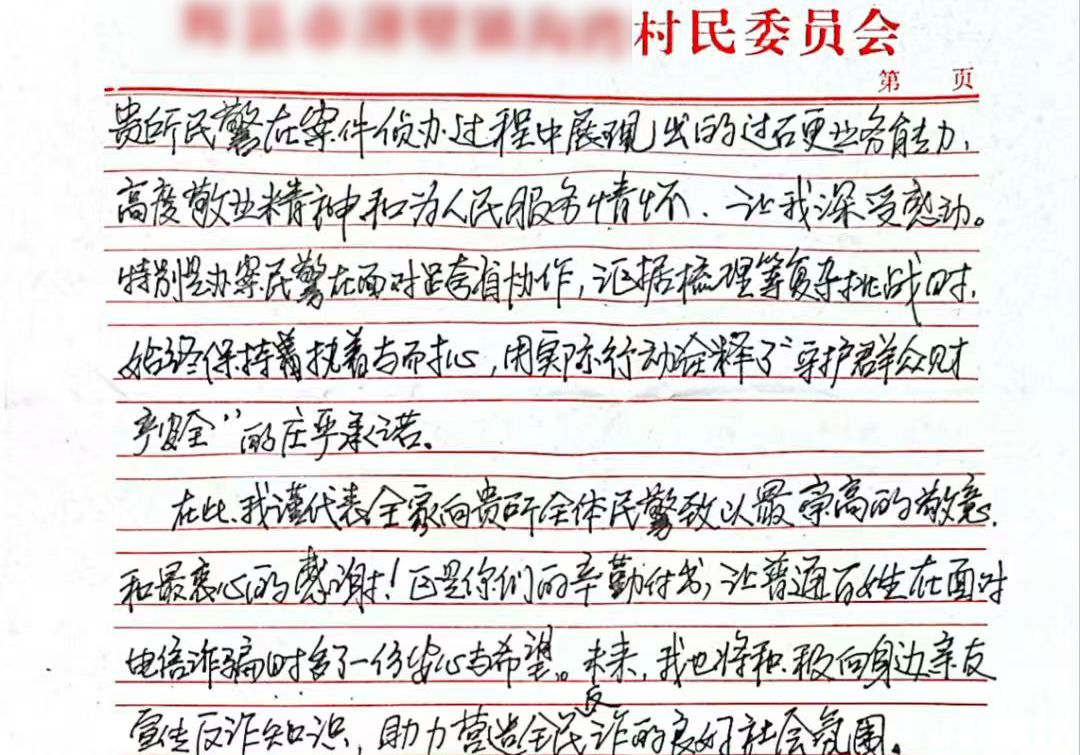 村民委员会
第 页
贵所民警在案件侦办过程中展现出的过石更业务能力,
高度敬业精神和为人民服务情怀、让我深受感动。
特别是办案民警在面对跨省协作,证据梳理等复杂挑战时,
始终保持着执着与耐心,用实际行动诠释了“守护群众财
产安全”的庄严承诺。
在此,我谨代表全家向贵所全体民警致以最崇高的敬意,
和最衷心的感谢!正是你们的辛勤付出,让普通百姓在面对
电信诈骗时多了一份安心与希望。未来,我也将积极向身边亲友
宣传反诈知识,助力营造全民反诈的良好社会氛围。